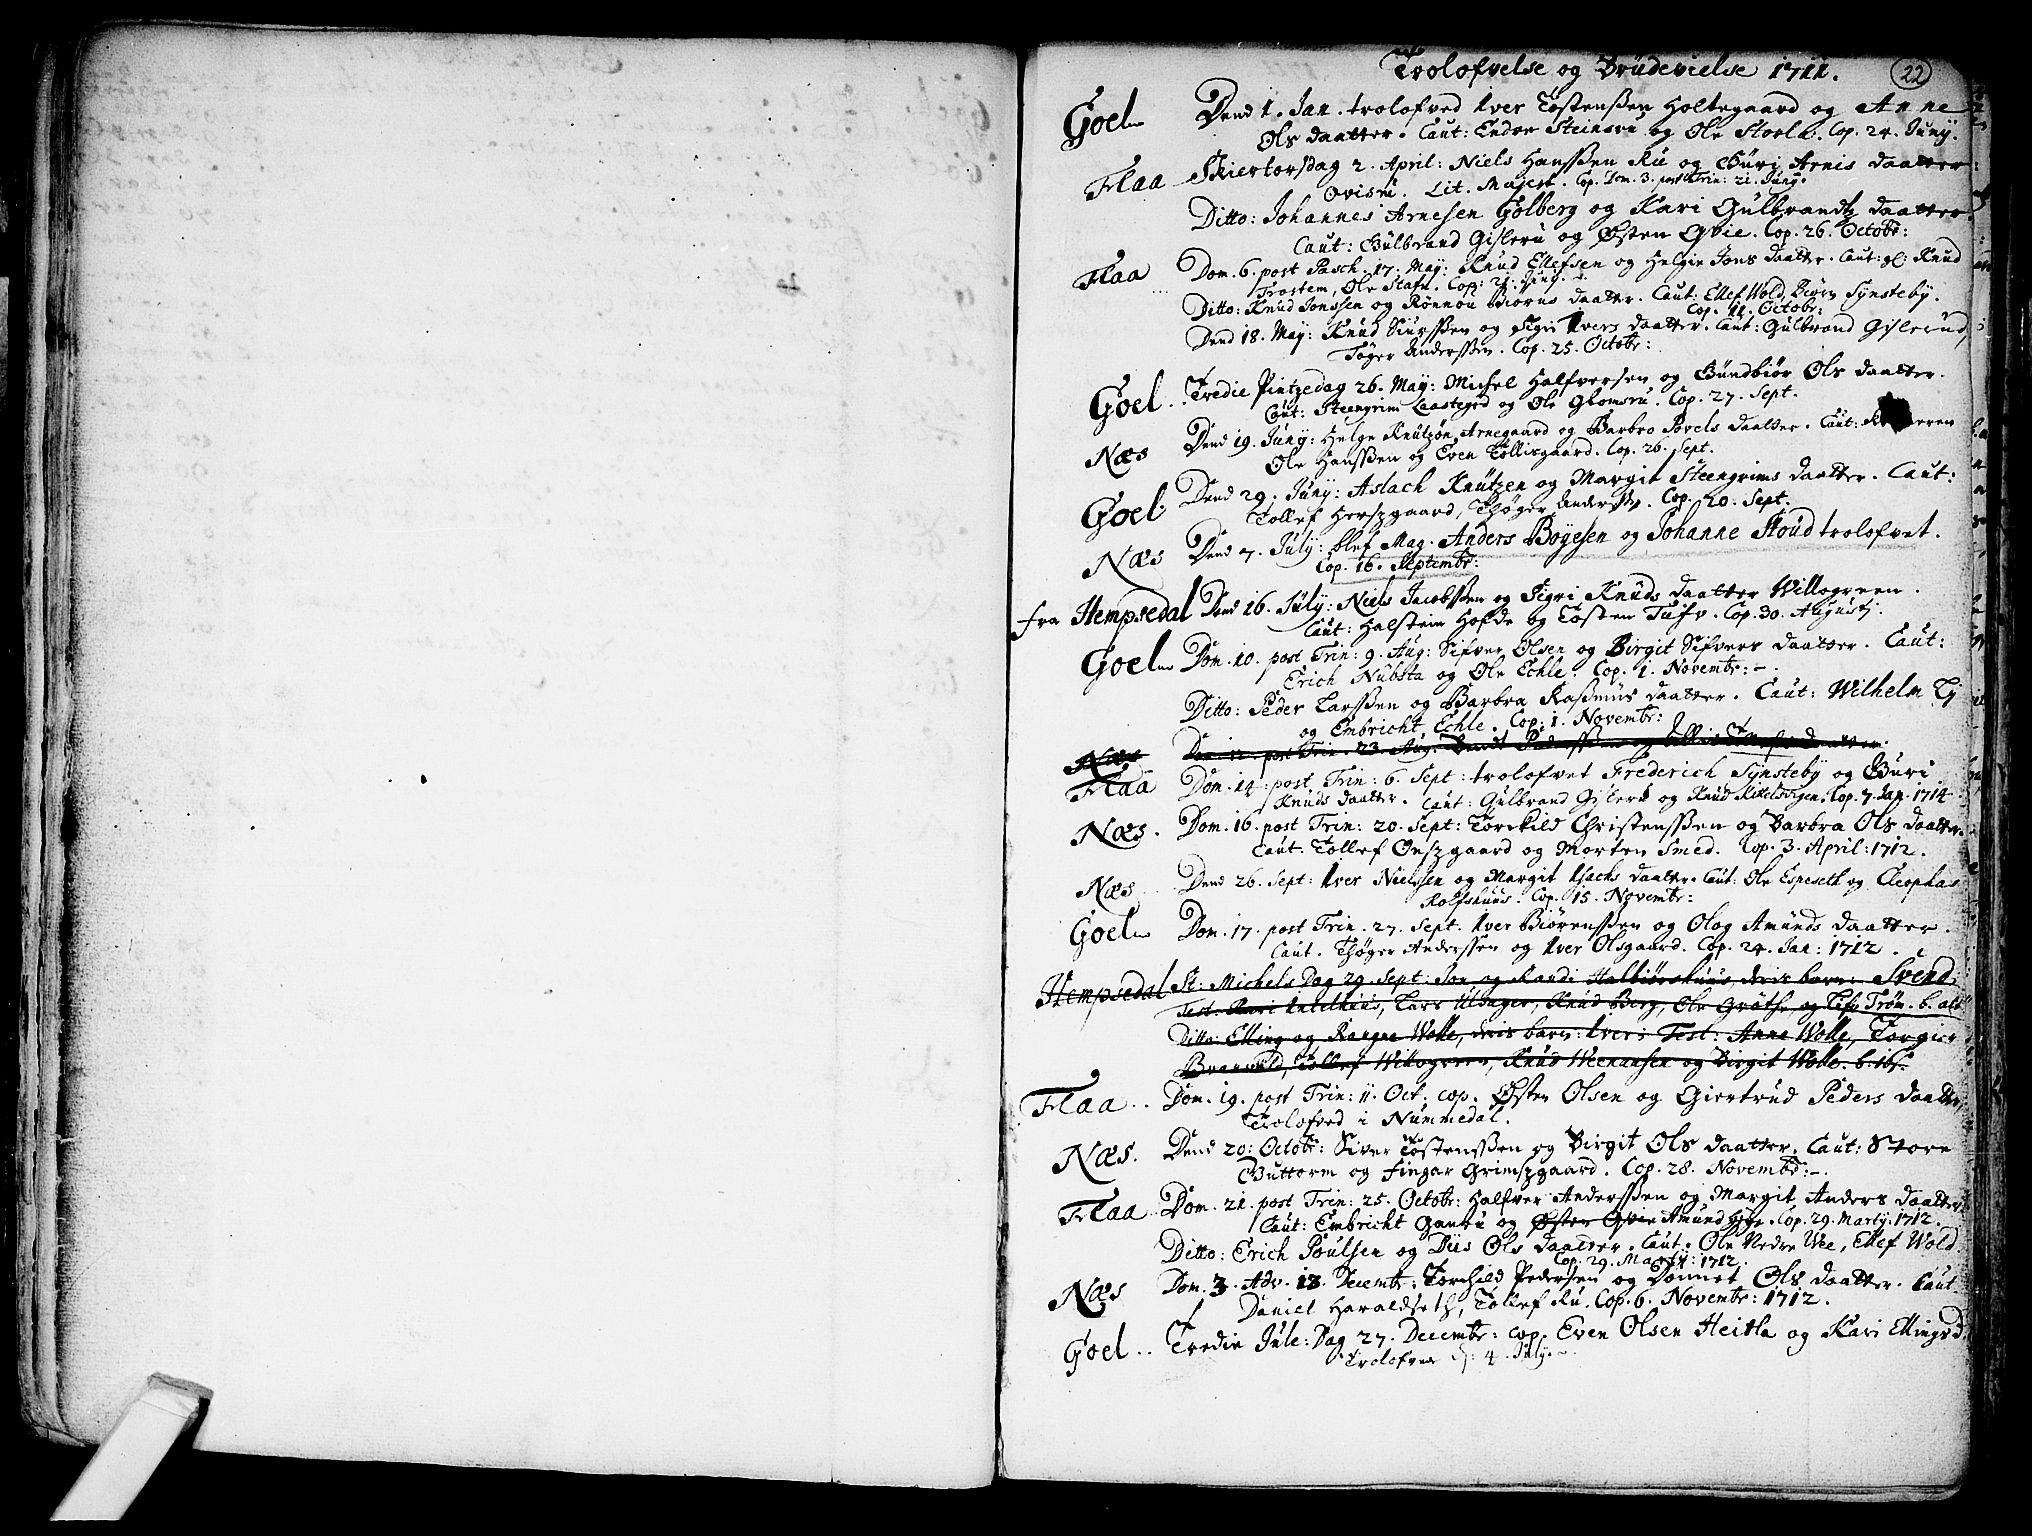 Trolofvelse og Brudevielse 1711. 22
Goel Dend 1. Jan. trolofved Iver Tostenssen Holtegaard og Anne
Ols daatter. Caut: Endre Steinsru og Ole Stoelk. Cop. 24. Juny.
Flaa Skiertorsdag 2. April: Niels Hanssen Ru og Guri Arnis daatter
Ovisru. Lit. Majest. Cop. Dom. 3. post Trin: 21. Juny.
Ditto: Johannes Arnesen Golberg og Kari Gulbrandtz daatter.
Caut: Gulbrand Gisleru og Østen Qvie. Cop. 26. Octobr:
Flaa Dom. 6. post Pasch. 17. May: Knud Ellefsen og Helgie Jons daatter. Caut: gl: Knud
Trostem, Ole Stafn. Cop: 21. Juny.
Ditto: Knud Jonssen og Rønnou Biørns daatter. Caut: Ellef Wold, Biørn Synsteby.
Cop. 11. Octobr:
Dend 18. May: Knud Siurssen og Sigri Ivers daatter. Caut: Gulbrand Gislerud,
Tøger Anderssen. Cop. 25. Octobr:
Goel. Tredie Pintzedag 26. May: Michel Halfversen og Gundbiør Ols daatter.
Caut: Steengrim Laastegrd og Ole Glomsru. Cop. 27. Sept.
Næs Dend 19. Juny: Helge Knutzøn Arnegaard og Barbro Povels daatter. Caut:
Ole Hanssen og Even Tollisgaard. Cop. 26. Sept.
Goel. Dend 29. Juny: Aslach Knutzen og Margit Steengrims daatter. Caut:
Tollef Herszgaard, Thøger Anderss. Cop. 20. Sept.
Næs Dend 7. July: blef Mag. Anders Bøyesen og Johanne Stoud trolofvet.
Cop. 16. Septembr:
fra Hempsedal Dend 16. July: Niels Jacobssen og Sigri Knuds daatter Willogreen.
Caut: Halstein Hofde og Tosten Tufv. Cop. 30. Augusti.
Goel Dom. 10. post Trin: 9. Aug: Sifver Olsen og Birgit Sifvers daatter. Caut:
Erich Nubsta og Ole Echle. Cop. 1. Novembr:-.
Ditto: Peder Larssen og Barbra Rasmus daatter. Caut: Wilhelm Ty
og Embricht Echle. Cop: 1. Novembr:
Næs Dom. 12. post Trin. 23. Aug: Bendt Pederssen og
Flaa Dom. 14. post Trin: 6. Sept: trolofvet Frederich Synsteby og Guri
Knuds daatter. Caut: Gulbrand Gisleru og Knud Kikelsbrgen. Cop. 7. Jan. 1714
Næs. Dom. 16. post Trin: 20. Sept: Torckild Christenssen og Barbra Ols daatter.
Caut: Tollef Onszgaard og Morten Smed. Cop. 3. April: 1712.
Næs Dend 26. Sept: Iver Nielssen og Margit Isachs daatter. Caut: Ole Espeseth og Cleophas
Rolfshuus. Cop. 15. Novembr:
Goel Dom. 17. post Trin. 27. Sept. Iver Biørenssen og Olog Amunds daatter.
Caut. Thøger Anderssen og Iver Olsgaard. Cop. 24. Jan: 1712.
Hempsedal St: Michels Dag 29. Sept: Jon og Randi Halbiørshuus deris barn: Svend
Test. Kari Intelhuus, Lars Ulsager, Knud Berg, Ole Grøthe og Trøm. b. ald
Ditto: Elling og Ragne Wolle, deris barn: Iver: Test: Anne Wolle, Torgier
Tollef Willogreen, Knud Weehansen og Birgit Wolle. b. 16.
Flaa.. Dom. 19. post Trin: 11. Oct. cop. Østen Olsen og Giertrud Peders daatter,
Trolofved i Nummedal.
Næs. Dend 20: Octobr: Siver Tostenssen og Birgit Ols daatter. Caut: Store
Guttorm og Fingar Grimszgaard. Cop. 28. Novembr:-.
Flaa Dom. 21. post Trin: 25. Octobr: Halfver Anderssen og Margit Anders daatter.
Caut: Embricht Gandru og Østen Qvie Amund. Cop. 29. Martij. 1712.
Ditto: Erich Poulsen og Diis Ols daatter. Caut. Ole Nedre Wee, Ellef Wold
Cop. 29. Martij: 1712.
Næs Dom. 3. Adv. 13. Decembr: Torchild Pedersen og Donnet Ols daatter. Caut
Daniel Haraldseth, Tollef Ru. Cop. 6. Novembr: 1712.
Goel.. Tredie Jule: Dag 27. Decembr: cop. Even Olsen Heitla og Kari Ellingsd.
Trolofved 4. July.-